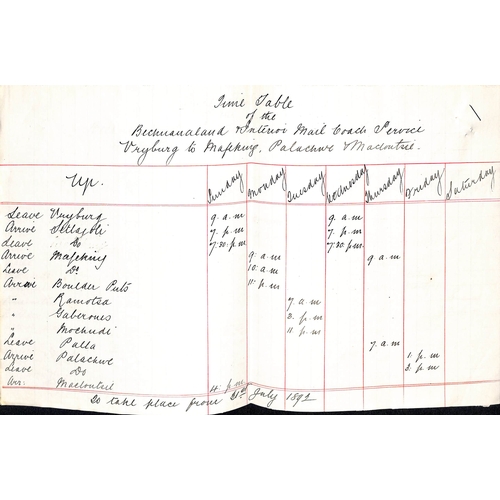 Time Table
of the
Bechuanaland & Interior Mail Coach Service
Vryburg to Mafeking, Palachwe & Macloutsie.
Up. Sunday Monday Tuesday Wednesday Thursday Friday Saturday
Leave Vryburg 9 a.m 9 a.m
Arrive Setlagoli 7 p.m 7 p.m
Leave Do 7.30 p.m 7.30 p.m
Arrive Mafeking 9 a.m 9 a.m
Leave Do 10 a.m
Arrive Boulder Puts 11 p.m
" Ramotsa 7 a.m
" Gaberones 2 p.m
" Mochudi 11 p.m
Leave Palla 7 a.m
Arrive Palachwe 1 p.m
Leave Do 2 p.m
Arr: Macloutsie 4 p.m
To take place from July 1892